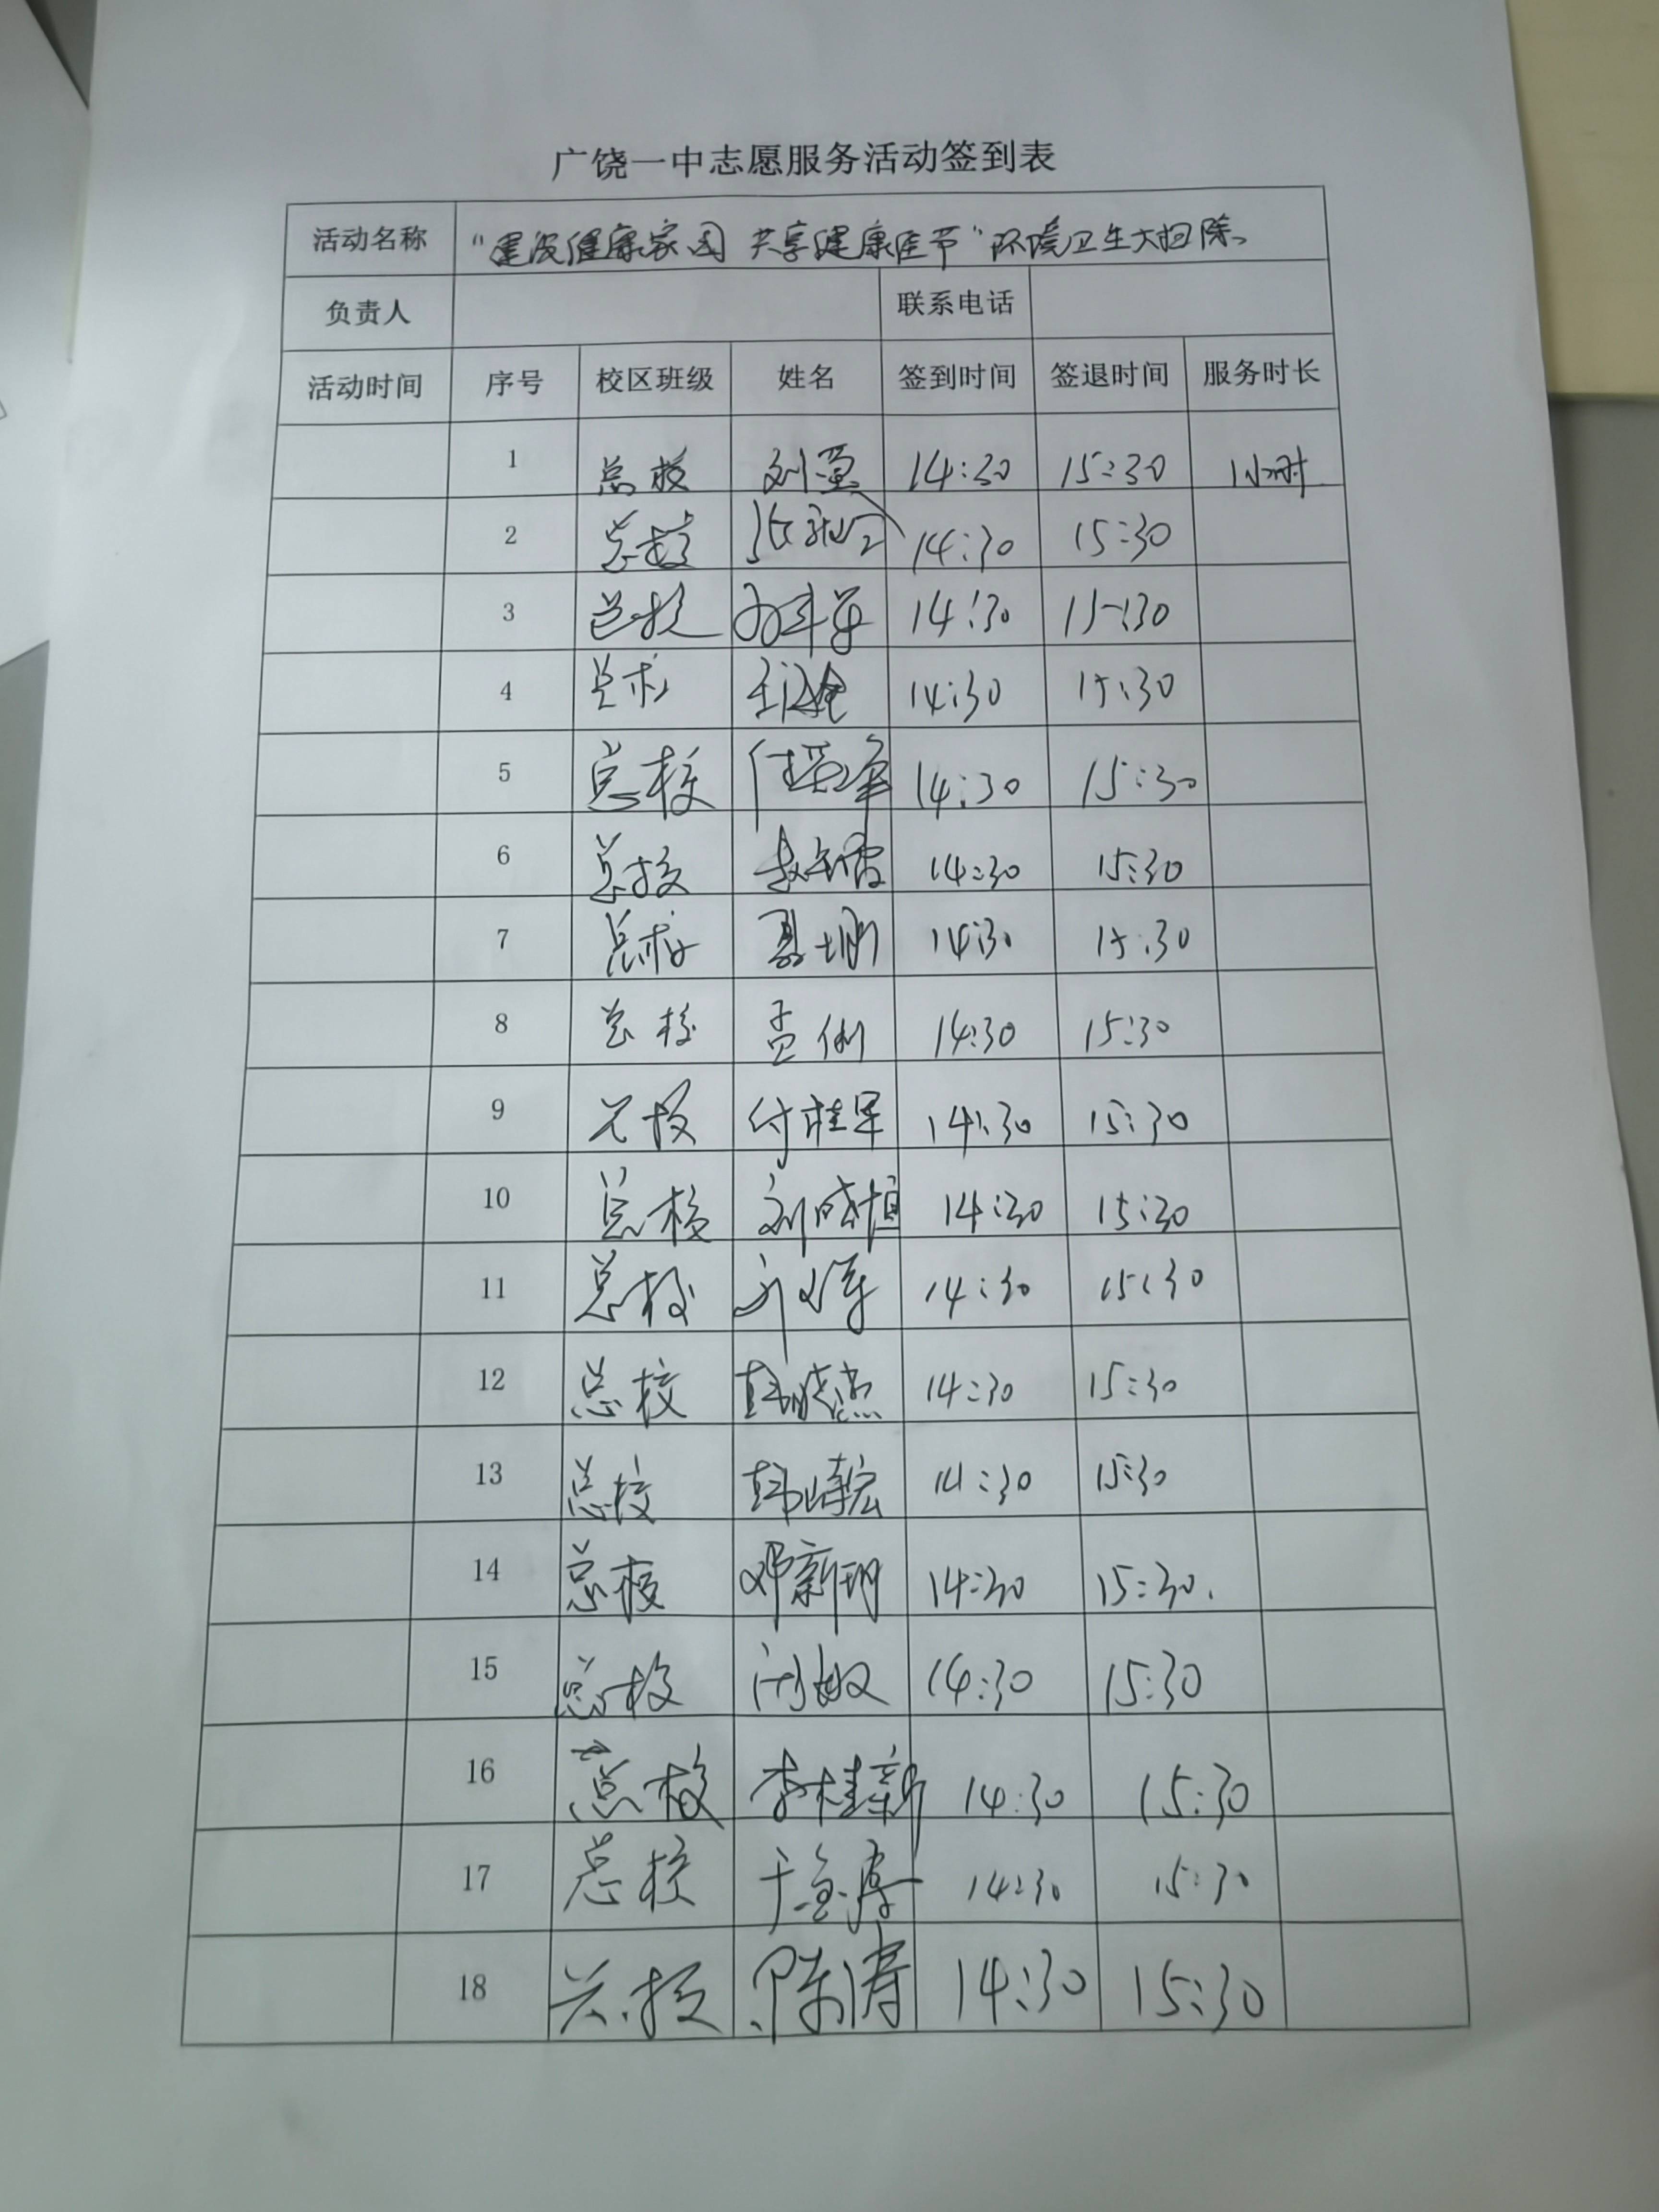 广饶一中志愿服务活动签到表
活动名称 "建设健康家园 共享健康佳节"环境卫生大扫除。
负责人 联系电话
活动时间 序号 校区班级 姓名 签到时间 签退时间 服务时长
1 总校 14:30 15:30 1小时
2 总校 14:30 15:30
3 总校 14:30 15:30
4 总校 14:30 15:30
5 总校 14:30 15:30
6 总校 14:30 15:30
7 总校 14:30 15:30
8 总校 14:30 15:30
9 总校 付桂军 14:30 15:30
10 总校 14:30 15:30
11 总校 14:30 15:30
12 总校 韩晓杰 14:30 15:30
13 总校 14:30 15:30
14 总校 邓新玥 14:30 15:30.
15 总校 14:30 15:30
16 总校 李桂新 14:30 15:30
17 总校 14:30 15:30
18 总校 陈涛 14:30 15:30